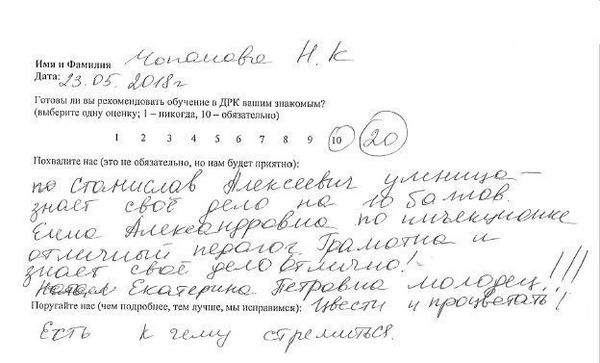 Имя и Фамилия Чопанова Н.К
Дата: 23.05.2018г
Готовы ли вы рекомендовать обучение в ДРК вашим знакомым?
(выберите одну оценку; 1 – никогда, 10 – обязательно)
1 2 3 4 5 6 7 8 9 10 20
Похвалите нас (это не обязательно, но нам будет приятно):
по Станислав Алексеевич умница –
знает своё дело на 10 баллов.
Елена Александровна по инъекционке
отличный педагог. Грамотна и
знает своё дело отлично! –
Екатерина Петровна молодец!!!
Поругайте нас (чем подробнее, тем лучше, мы исправимся): Цвести и процветать!
Есть к чему стремиться.